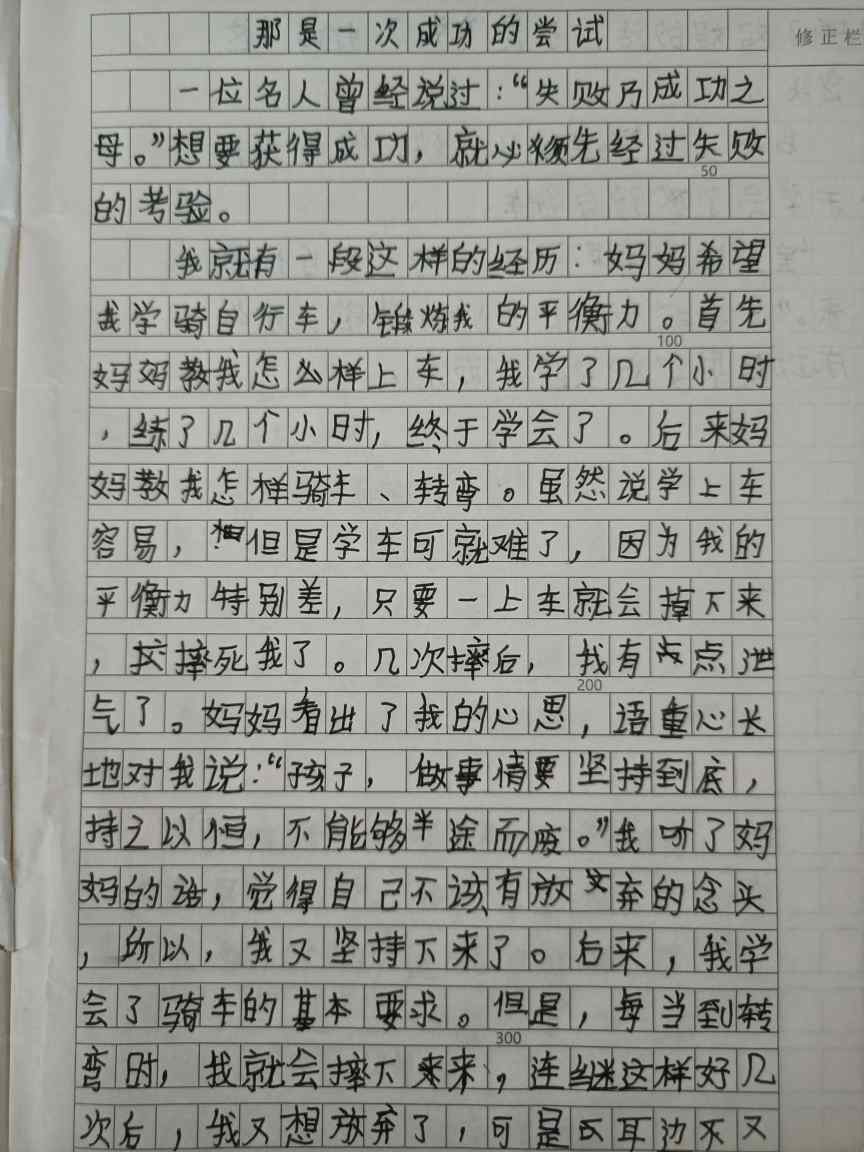 那是一次成功的尝试
修正栏
一位名人曾经说过：“失败乃成功之
母。”想要获得成功，就必须先经过失败
50
的考验。
我就有一段这样的经历：妈妈希望
我学骑自行车，锻炼我的平衡力。首先
100
妈妈教我怎么样上车，我学了几个小时
，练了几个小时，终于学会了。后来妈
妈教我怎样骑车、转弯。虽然说学上车
容易，但是学车可就难了，因为我的
平衡力特别差，只要一上车就会掉下来
，摔死我了。几次摔后，我有点泄
200
气了。妈妈看出了我的心思，语重心长
地对我说：“孩子，做事情要坚持到底，
持之以恒，不能够半途而废。”我听了妈
妈的话，觉得自己不该有放弃的念头
，所以，我又坚持下来了。后来，我学
会了骑车的基本要求。但是，每当到转
300
弯时，我就会摔下来，连继这样好几
次后，我又想放弃了，可是耳边不又